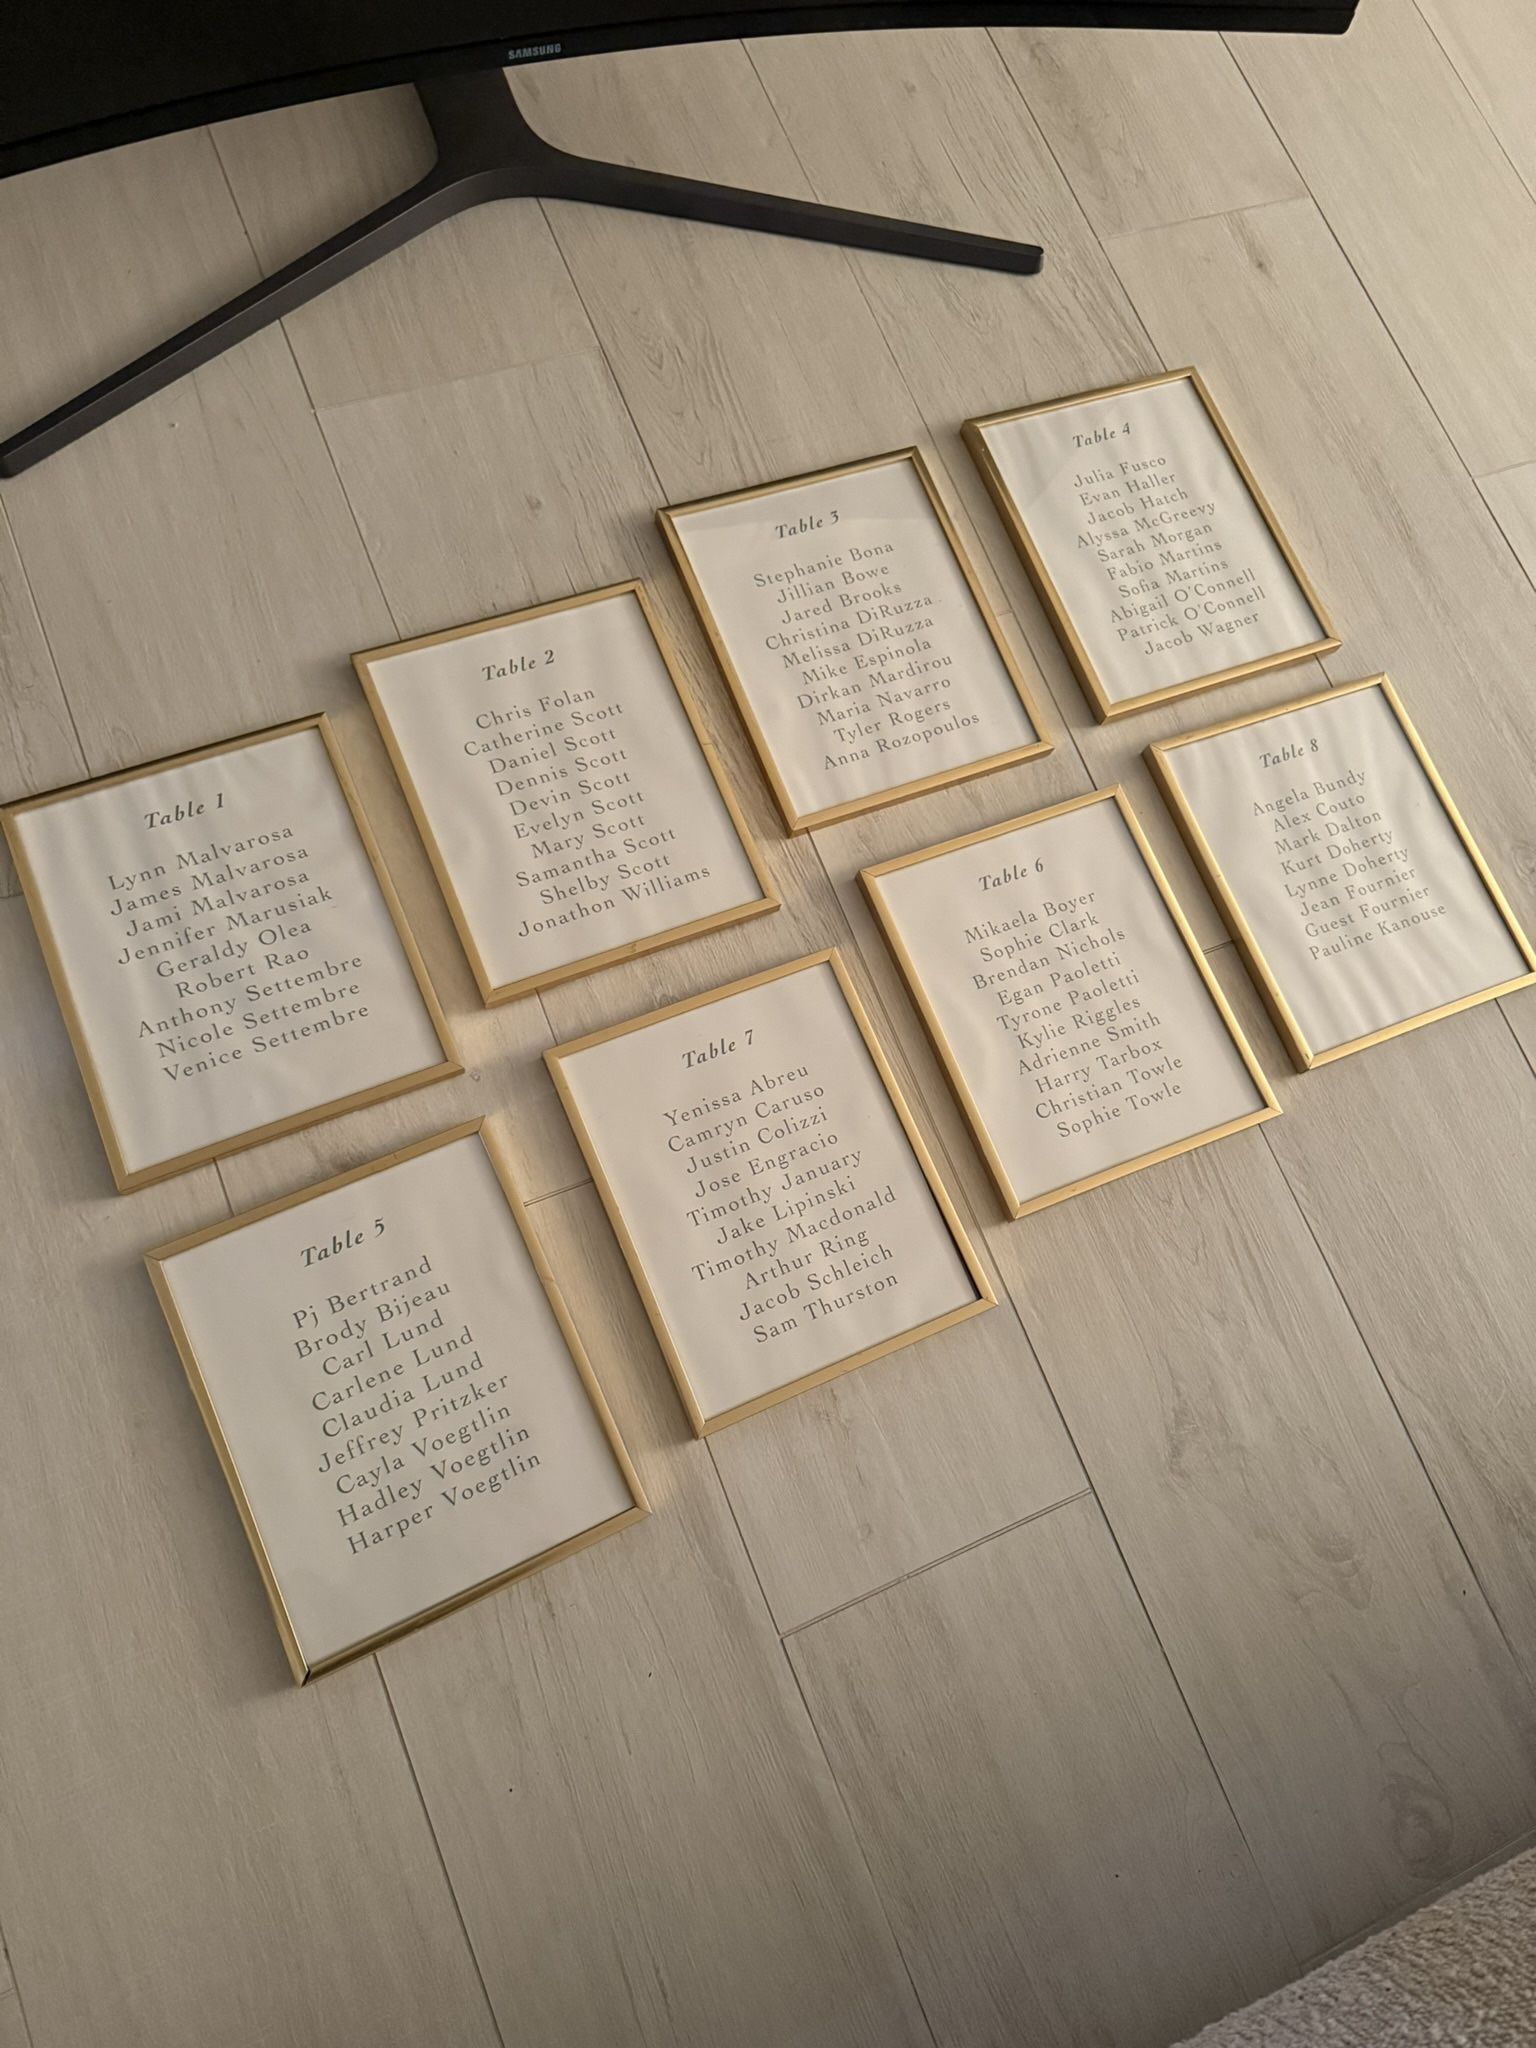 SAMSUNG
Table 1
Lynn Malvarosa
James Malvarosa
Jami Malvarosa
Jennifer Marusiak
Geraldy Olea
Robert Rao
Anthony Settembre
Nicole Settembre
Venice Settembre
Table 2
Chris Folan
Catherine Scott
Daniel Scott
Dennis Scott
Devin Scott
Evelyn Scott
Mary Scott
Samantha Scott
Shelby Scott
Jonathon Williams
Table 3
Stephanie Bona
Jillian Bowe
Jared Brooks
Christina DiRuzza
Melissa DiRuzza
Mike Espinola
Dirkan Mardirou
Maria Navarro
Tyler Rogers
Anna Rozopoulos
Table 4
Julia Fusco
Evan Haller
Jacob Hatch
Alyssa McGreevy
Sarah Morgan
Fabio Martins
Sofia Martins
Abigail O'Connell
Patrick O'Connell
Jacob Wagner
Table 5
Pj Bertrand
Brody Bijeau
Carl Lund
Carlene Lund
Claudia Lund
Jeffrey Pritzker
Cayla Voegtlin
Hadley Voegtlin
Harper Voegtlin
Table 7
Yenissa Abreu
Camryn Caruso
Justin Colizzi
Jose Engracio
Timothy January
Jake Lipinski
Timothy Macdonald
Arthur Ring
Jacob Schleich
Sam Thurston
Table 6
Mikaela Boyer
Sophie Clark
Brendan Nichols
Egan Paoletti
Tyrone Paoletti
Kylie Riggles
Adrienne Smith
Harry Tarbox
Christian Towle
Sophie Towle
Table 8
Angela Bundy
Alex Couto
Mark Dalton
Kurt Doherty
Lynne Doherty
Jean Fournier
Guest Fournier
Pauline Kanouse